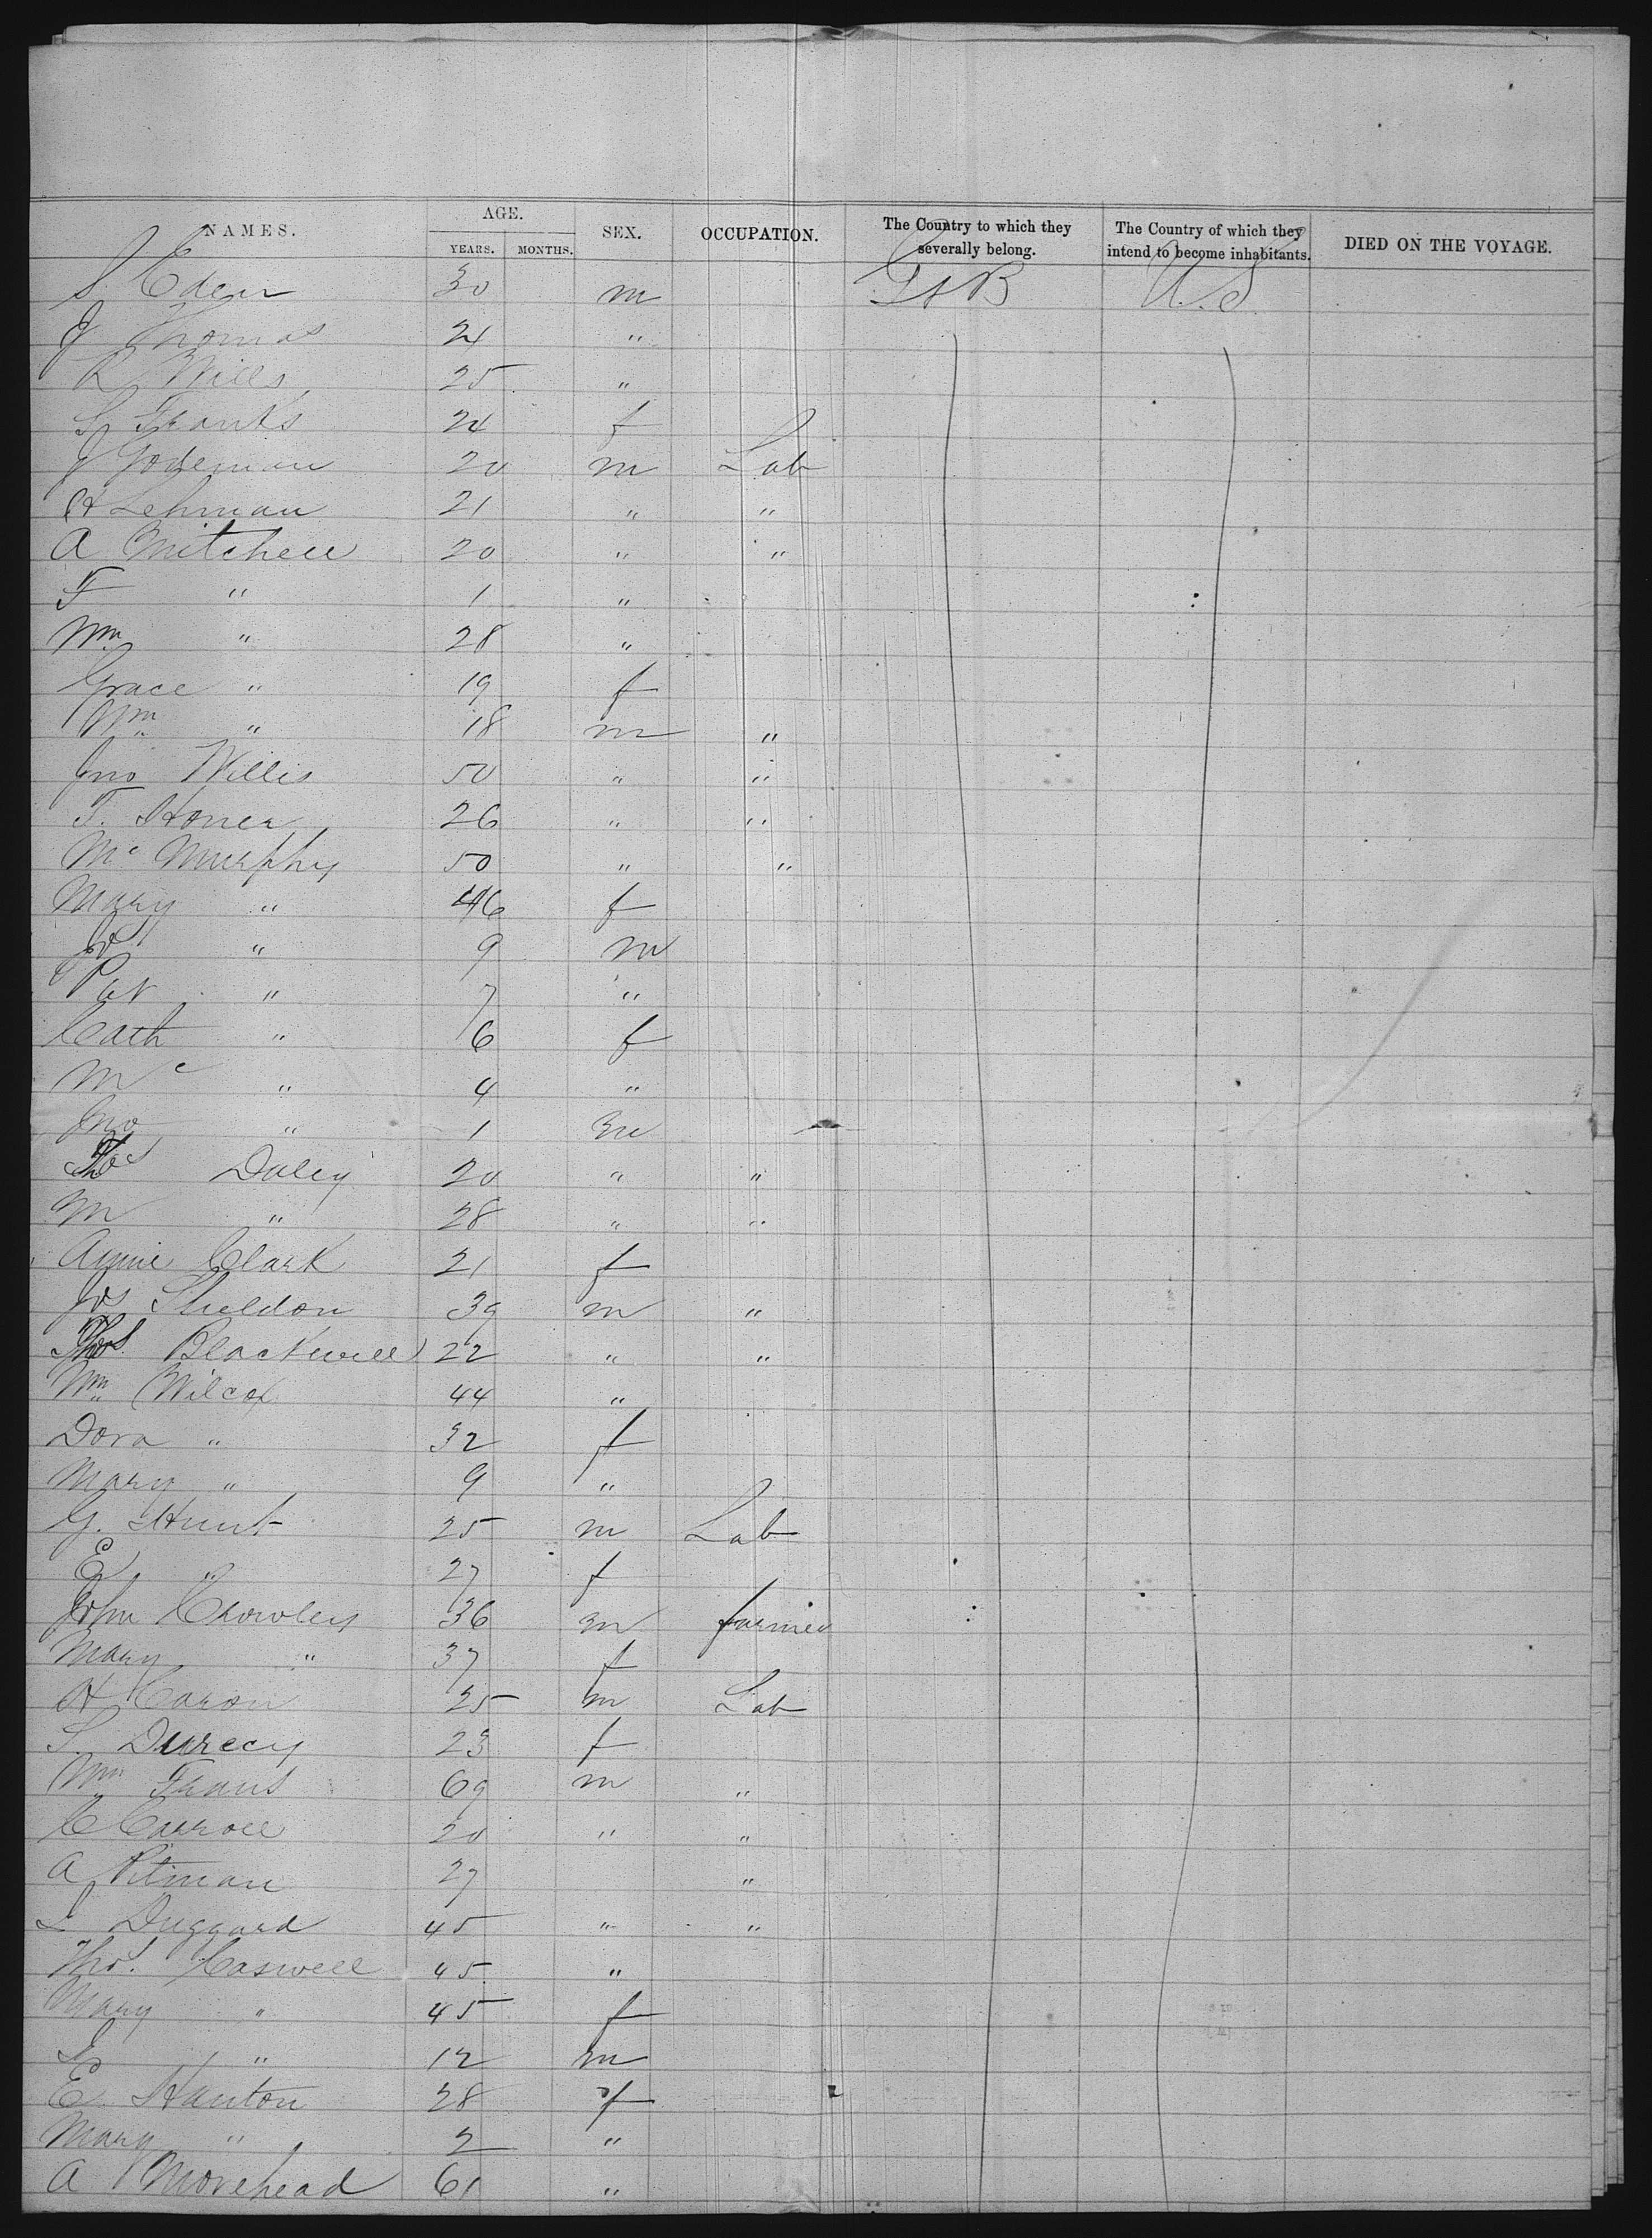 NAMES. AGE. SEX. OCCUPATION. The Country to which they severally belong. The Country of which they intend to become inhabitants. DIED ON THE VOYAGE.
YEARS. MONTHS.
S. Eden 30 m Gt B U.S.
J Thomas 24 "
R Mills 25 "
S. Franks 24 f
J 20 m Lab
H Lehman 21 " "
A Mitchell 20 " "
F " 1 "
Wm " 28 "
Grace " 19 f
Wm " 18 m "
Jno Willis 50 " "
T. 26 " "
Mc Murphy 50 " "
Mary " 46 f
Jos " 9 m
Pat " 7 "
Cath " 6 f
Mc " 4 "
Jno " 1 m
Thos Daley 20 " "
M " 28 " "
Annie Clark 21 f
Jos Sheldon 39 m "
Thos Blackwell 22 " "
Wm Wilcox 44 "
Dora " 32 f
Mary " 9 "
G. Hunt 25 m Lab
E " 27 f
John Crowley 36 m farmer
Mary " 37 f
H Caron 25 m Lab
S. 23 f
Wm 69 m "
C Carroll 20 " "
A Pitman 27 "
L Duggard 45 " "
Thos. Caswell 45 "
Mary " 45 f
S " 12 m
E Hanton 28 f
Mary " 2 "
A Morehead 61 "